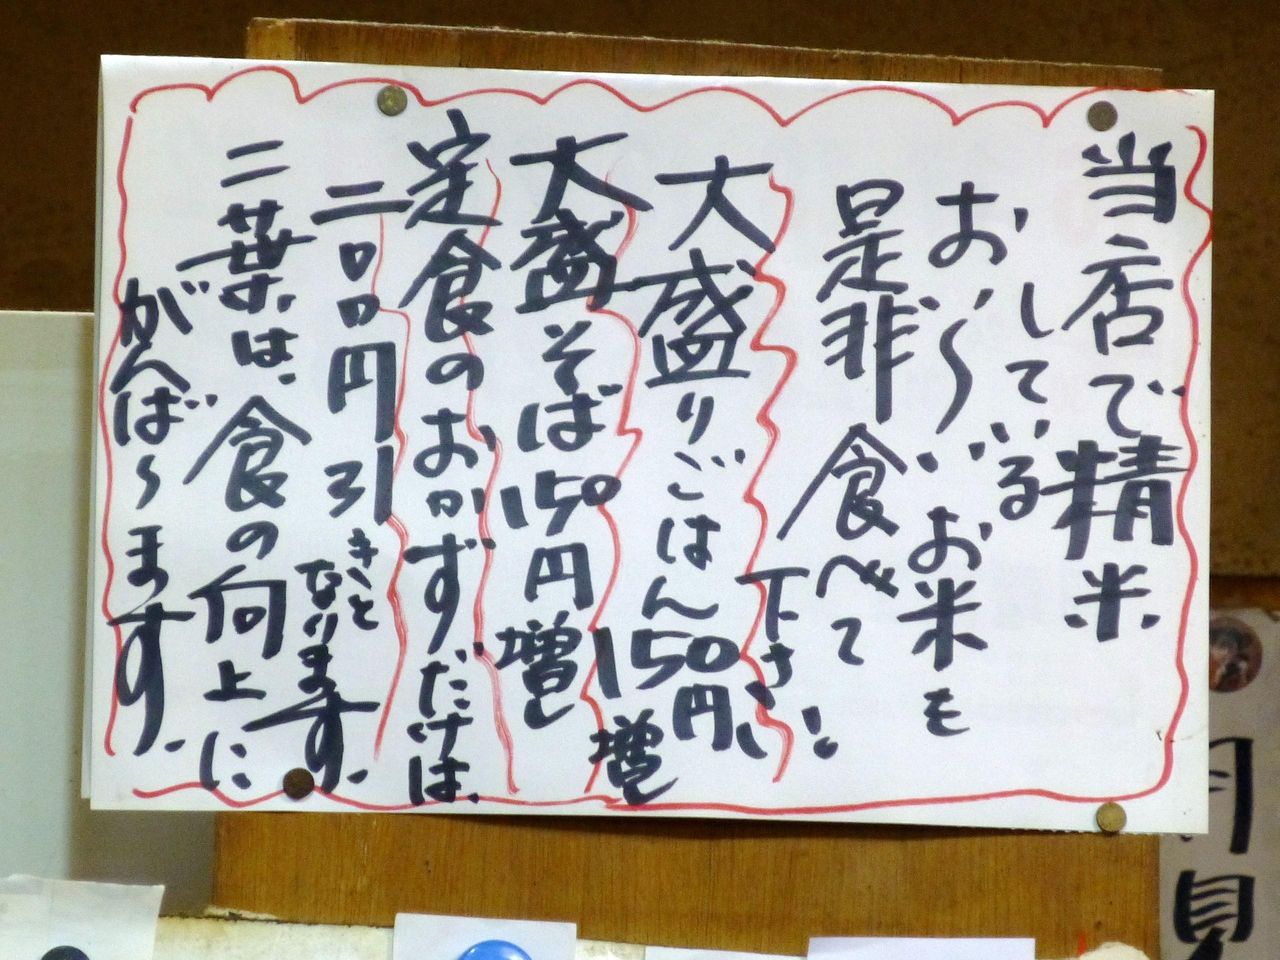 当店で精米
している
お〜いお米を
是非食べて
下さい!
大盛りごはん150円
増し
大盛そば150円増し
定食のおかずだけは、
二〇〇円引きと
なります。
二葉は、食の向上に
がんば〜ます。
月見